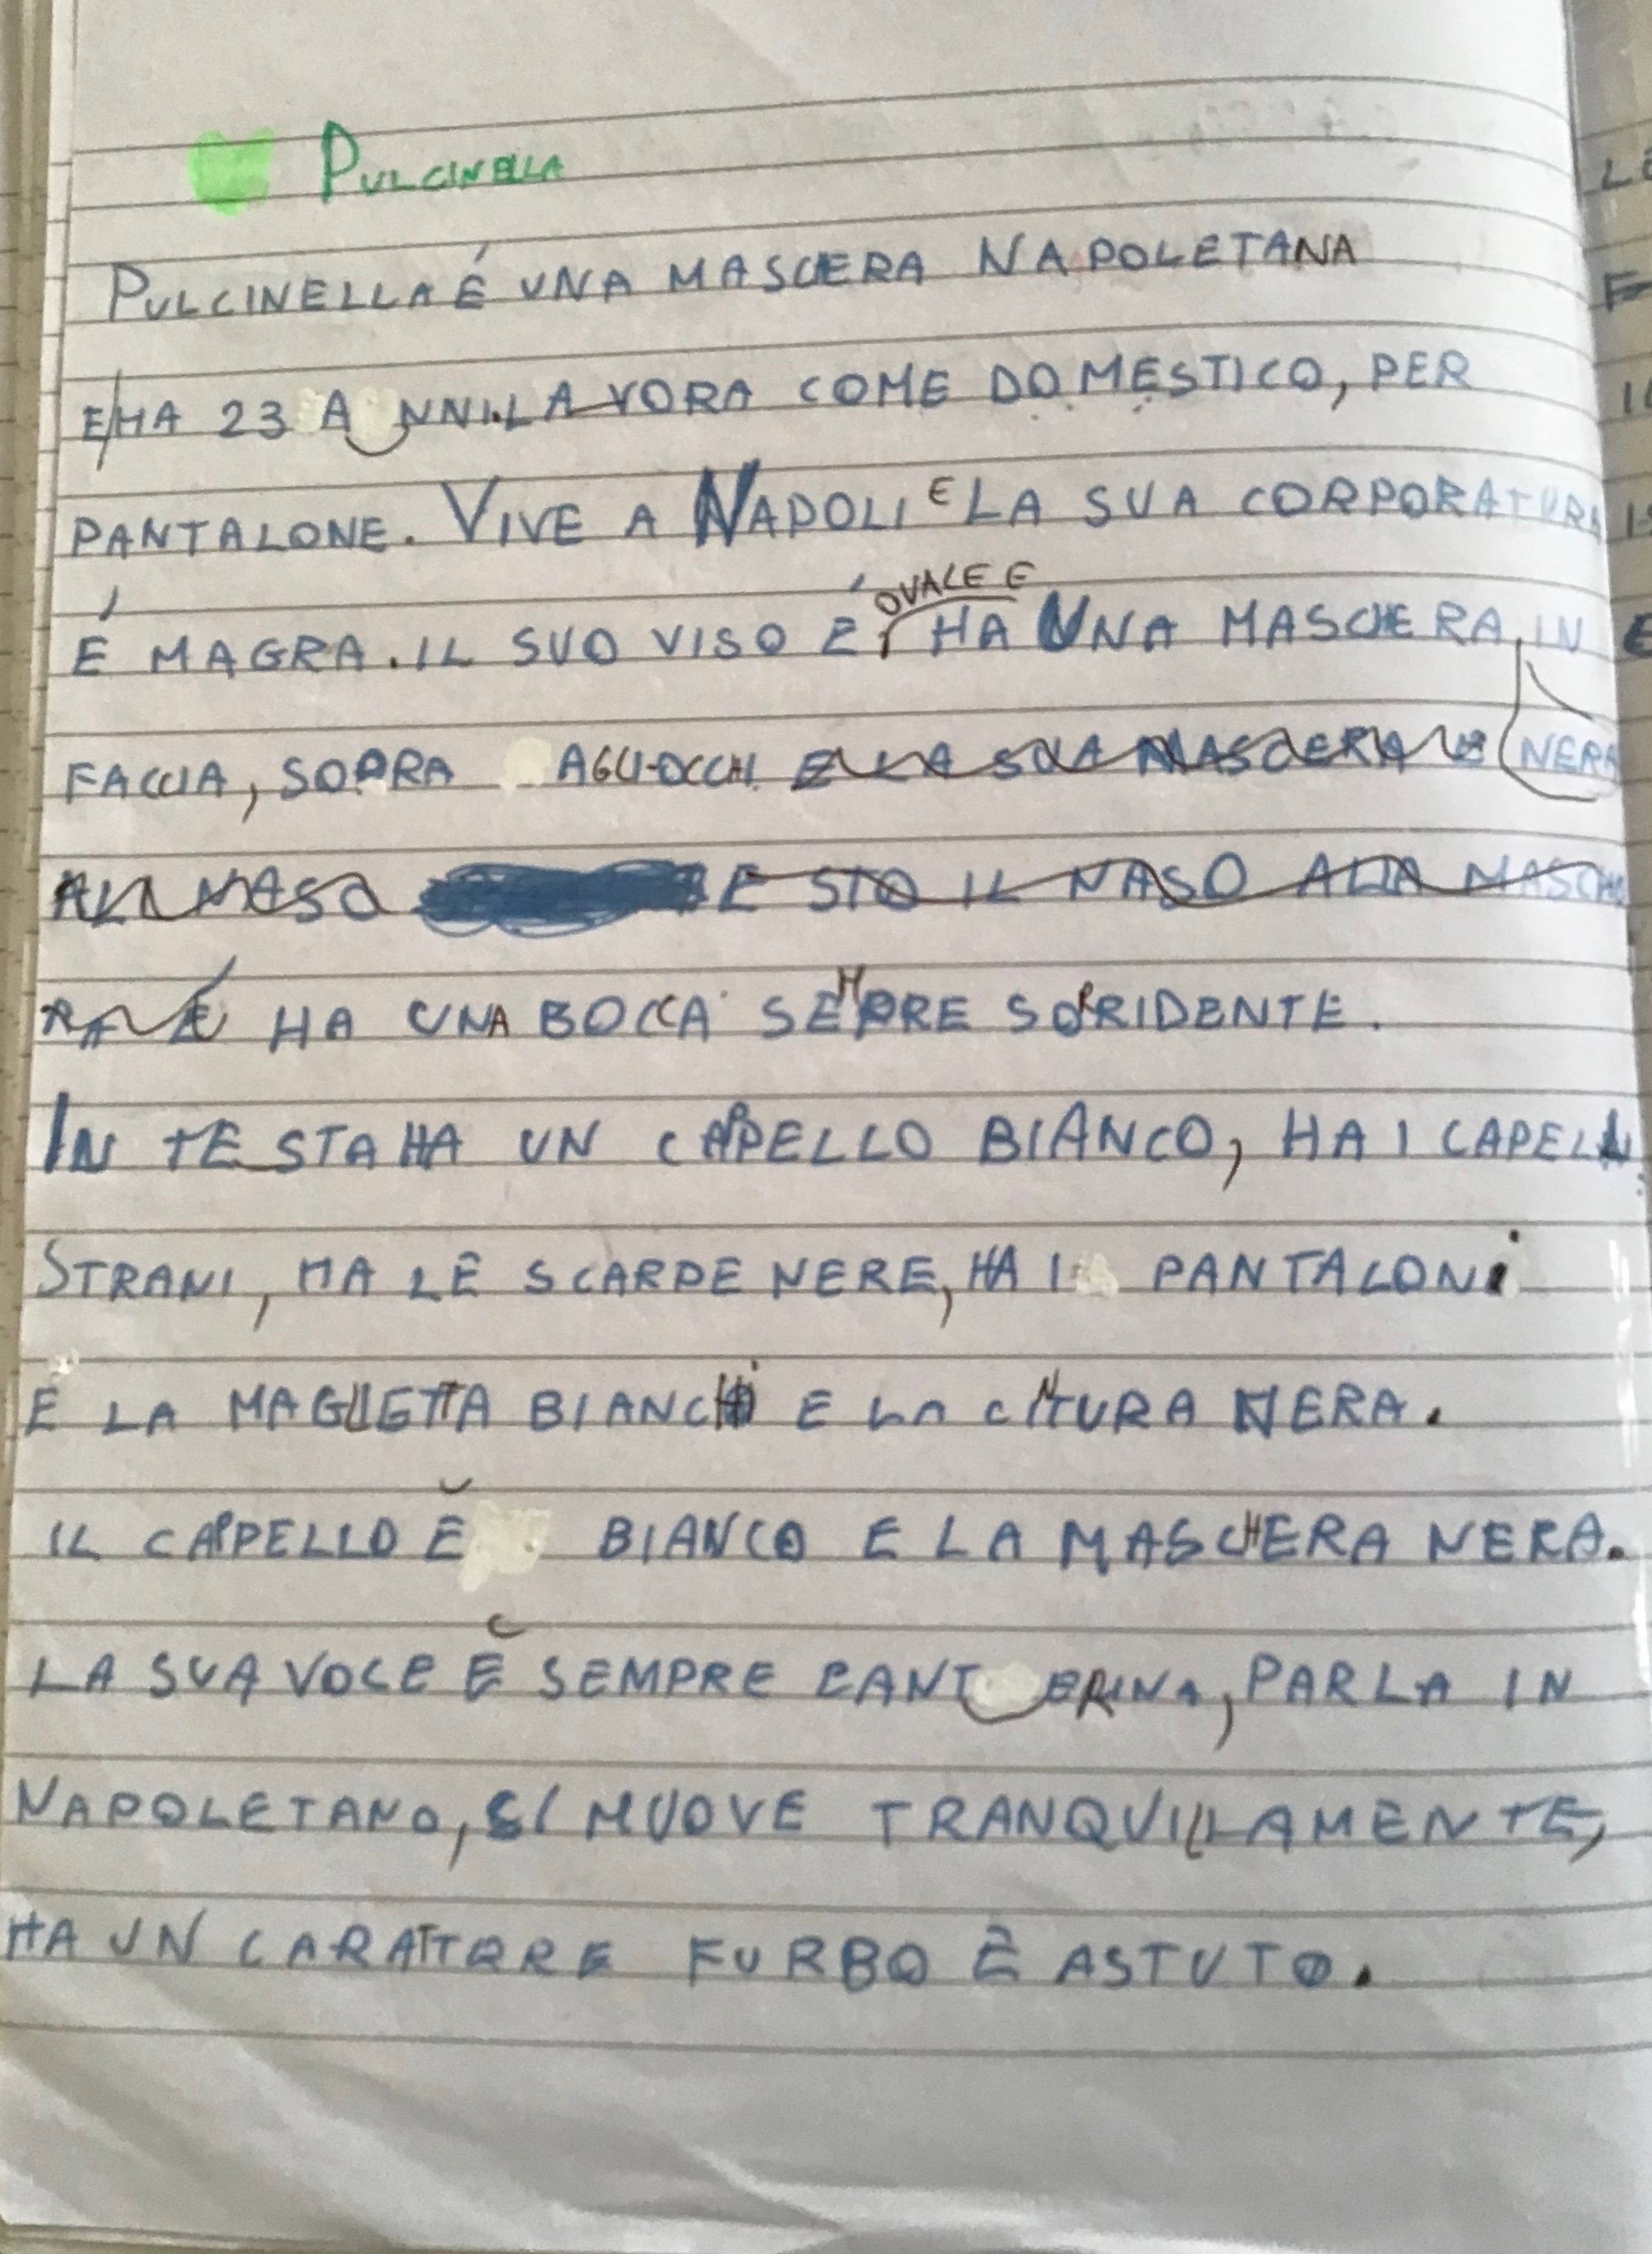 PULCINELLA
PULCINELLA É UNA MASCHERA NAPOLETANA
E HA 23 ANNI. LAVORA COME DOMESTICO, PER
PANTALONE. VIVE A NAPOLI E LA SUA CORPORATURA
É MAGRA. IL SUO VISO É OVALE E HA UNA MASCHERA IN
FACCIA, SOPRA AGLI OCCHI E LA SUA MASCERA NERA
BESTO IL NASO ALLA MASCHE
RA É HA UNA BOCCA SEMPRE SORRIDENTE.
IN TESTA HA UN CAPPELLO BIANCO, HA I CAPELLI
STRANI, HA LE SCARPE NERE, HA I PANTALONI
E LA MAGLIETTA BIANCHI E LA CINTURA NERA.
IL CAPPELLO È BIANCO E LA MASCHERA NERA.
LA SUA VOCE È SEMPRE CANTERINA, PARLA IN
NAPOLETANO, SI MUOVE TRANQUILLAMENTE,
HA UN CARATTERE FURBO È ASTUTO.